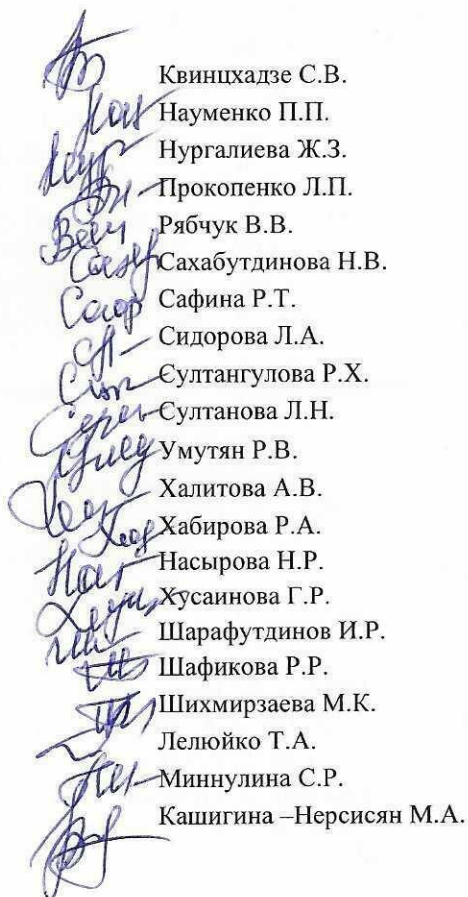 Квинцхадзе С.В.
Науменко П.П.
Нургалиева Ж.З.
Прокопенко Л.П.
Рябчук В.В.
Сахабутдинова Н.В.
Сафина Р.Т.
Сидорова Л.А.
Султангулова Р.Х.
Султанова Л.Н.
Умутян Р.В.
Халитова А.В.
Хабирова Р.А.
Насырова Н.Р.
Хусаинова Г.Р.
Шарафутдинов И.Р.
Шафикова Р.Р.
Шихмирзаева М.К.
Лелюйко Т.А.
Миннулина С.Р.
Кашигина –Нерсисян М.А.